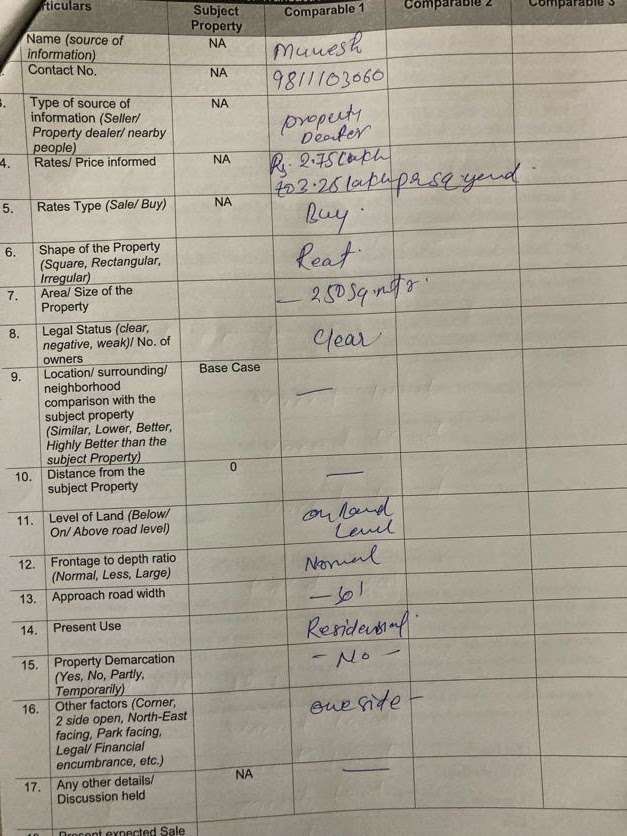 rticulars Subject Comparable 1 Comparable 2 Comparable 3
Property
Name (source of NA Munesh
information)
Contact No. NA 9811103060
3. Type of source of NA property
information (Seller/ Dealer
Property dealer/ nearby
people)
4. Rates/ Price informed NA Rs. 2.75 lakh
to 3.25 lakh per sq yend.
5. Rates Type (Sale/ Buy) NA Buy.
6. Shape of the Property Reat.
(Square, Rectangular,
Irregular)
7. Area/ Size of the — 250 Sq.mtr.
Property
8. Legal Status (clear, Clear
negative, weak)/ No. of
owners
9. Location/ surrounding/ Base Case —
neighborhood
comparison with the
subject property
(Similar, Lower, Better,
Highly Better than the
subject Property)
10. Distance from the 0 —
subject Property
11. Level of Land (Below/ on land
On/ Above road level) Level
12. Frontage to depth ratio Normal
(Normal, Less, Large)
13. Approach road width
14. Present Use Residensial.
15. Property Demarcation - No -
(Yes, No, Partly,
Temporarily)
16. Other factors (Corner, one side -
2 side open, North-East
facing, Park facing,
Legal/ Financial
encumbrance, etc.)
17. Any other details/ NA —
Discussion held
Present expected Sale